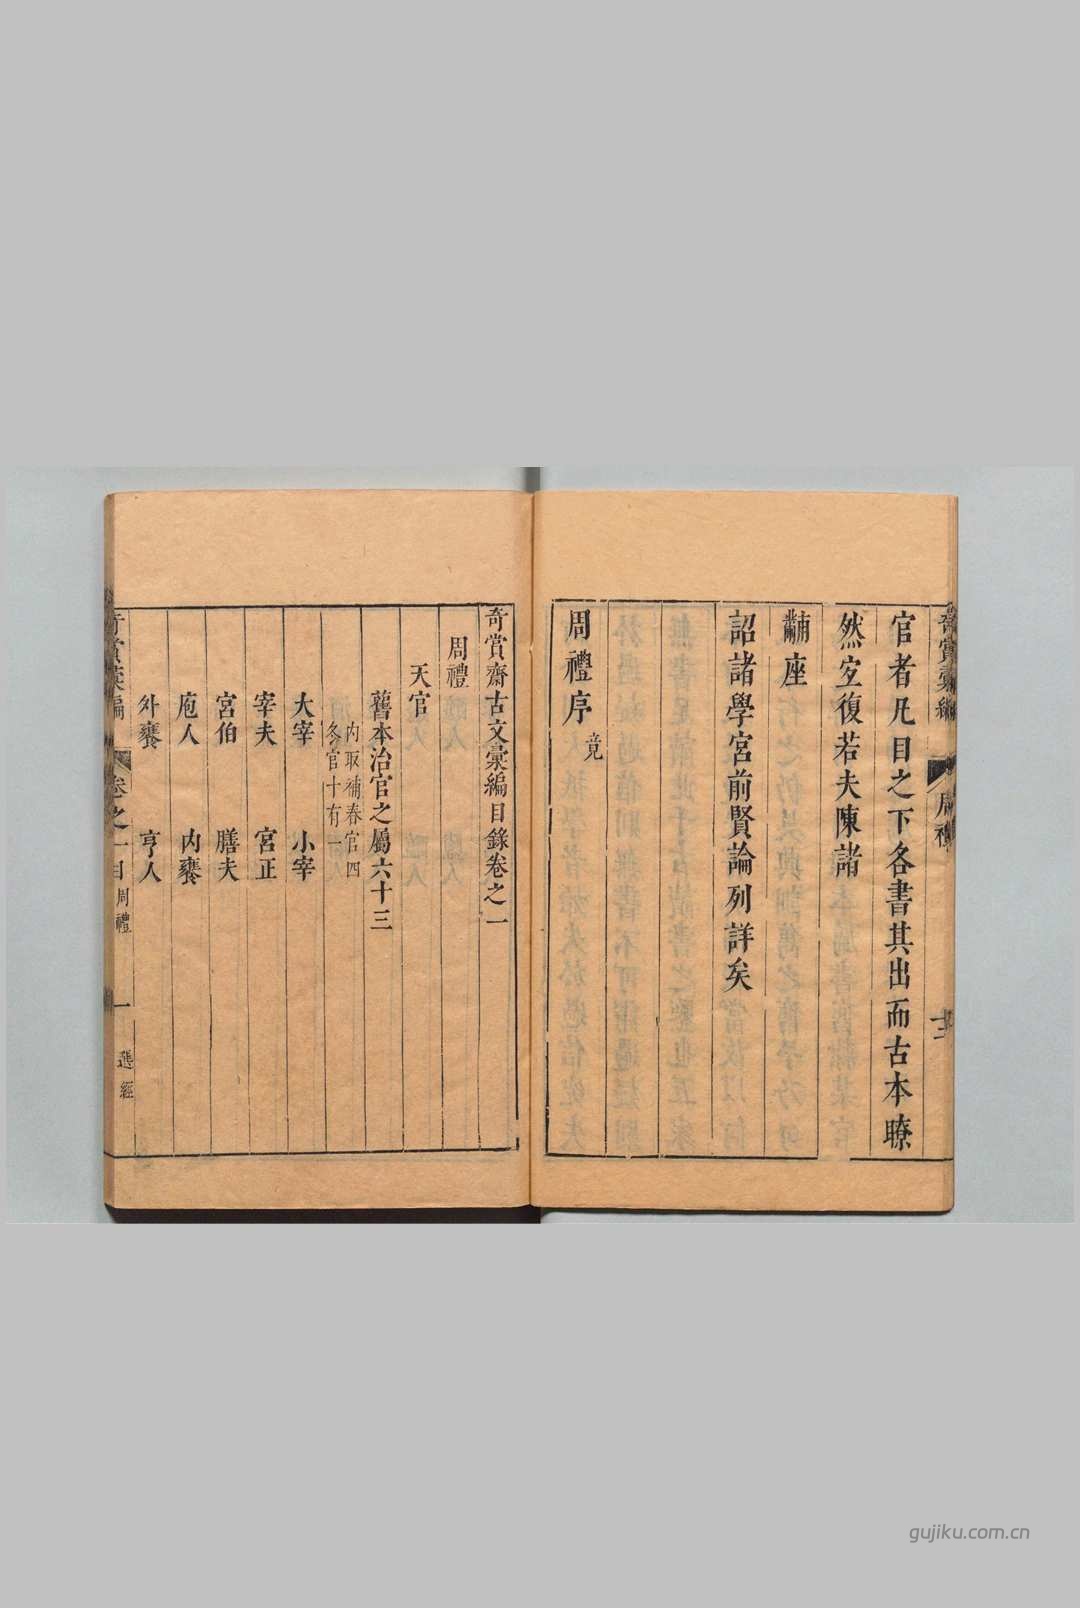 奇賞彙編
周禮
十二
官者凡目之下各書其出而古本瞭
然㝎復若夫陳諸
黼座
詔諸學宮前賢論列詳矣
周禮序 竟
奇賞齋古文彙編目錄卷之一
周禮
天官
舊本治官之屬六十三
内取補春官四
冬官十有一
大宰 小宰
宰夫 宮正
宮伯 膳夫
庖人 内饔
外饔 亨人
奇賞彙編 卷之一目 周禮 一 選經
gujiku.com.cn